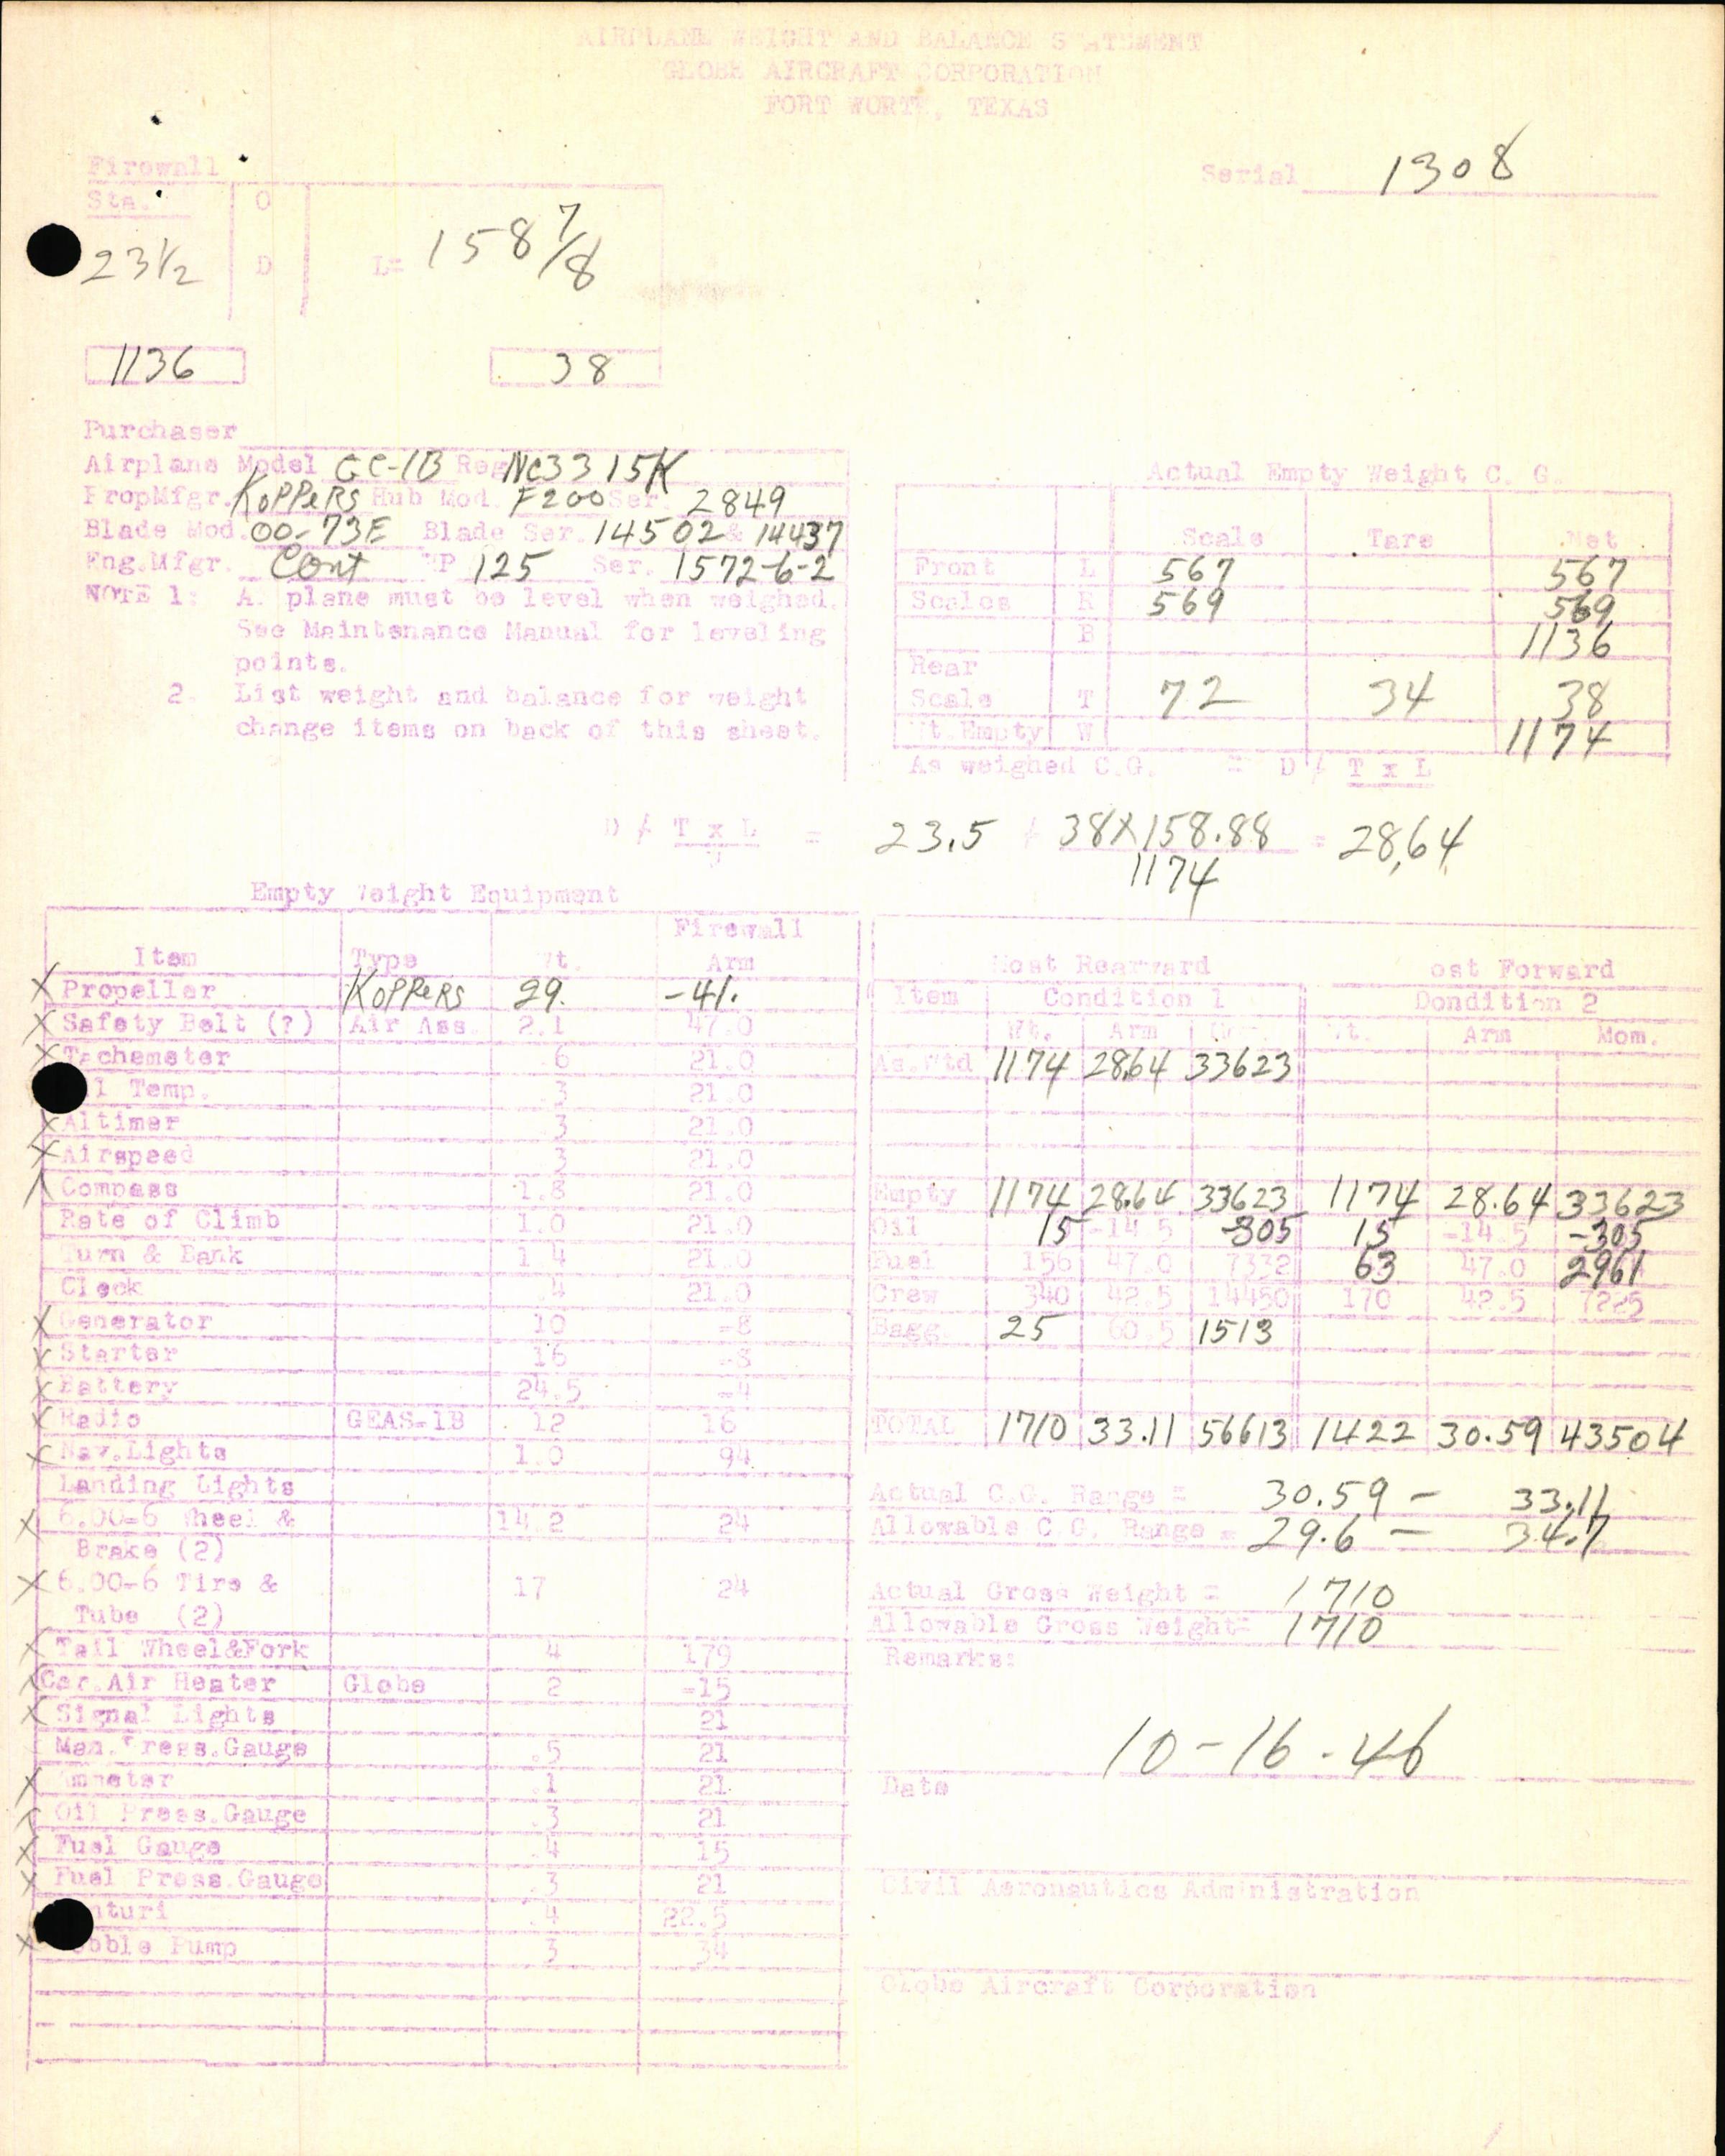 AIRPLANE WEIGHT AND BALANCE STATEMENT
GLOBE AIRCRAFT CORPORATION
FORT WORTH, TEXAS
Firewall
Serial 1308
Sta. O
23 1/2 D L= 158 7/8
1136 38
Purchaser
Airplane Model GC-1B Reg NC3315K
PropMfgr. KOPPERS Hub Mod. F200 Ser. 2849
Blade Mod. 00-73E Blade Ser. 14502 & 14437
Eng.Mfgr. Cont HP 125 Ser. 1572-6-2
NOTE 1: A. plane must be level when weighed.
See Maintenance Manual for leveling
points.
2. List weight and balance for weight
change items on back of this sheet.
Actual Empty Weight C. G.
Scale Tare Net
Front L 567 567
Scales R 569 569
B 1136
Rear
Scale T 72 34 38
Wt.Empty W 1174
As weighed C.G. = D / T x L
D / T x L / W = 23.5 / 38 X 158.88 / 1174 = 28.64
Empty Weight Equipment
Firewall
Item Type Wt. Arm
X Propeller KOPPERS 29. -41.
X Safety Belt (?) Air Ass. 2.1 47.0
X Tachometer .6 21.0
il Temp. .3 21.0
X Altimer .3 21.0
X Airspeed .3 21.0
X Compass 1.8 21.0
Rate of Climb 1.0 21.0
Turn & Bank 1.4 21.0
Clock .4 21.0
X Generator 10 -8
X Starter 16 -3
X Battery 24.5 -4
X Radio GEAS-1B 12 16
X Nav.Lights 1.0 94
Landing Lights
X 6.00-6 Wheel & 14.2 24
Brake (2)
X 6.00-6 Tire & 17 24
Tube (2)
X Tail Wheel&Fork 4 179
X Car.Air Heater Globe 2 -15
X Signal Lights 21
Man.Press.Gauge .5 21
X Ammeter .1 21
X Oil Press.Gauge .3 21
X Fuel Gauge .4 15
X Fuel Press.Gauge .3 21
nturi .4 22.5
X obble Pump 3 34
Most Rearward ost Forward
Item Condition 1 Dondition 2
Wt. Arm Mom. Wt. Arm Mom.
As.Wtd 1174 28.64 33623
Empty 1174 28.64 33623 1174 28.64 33623
Oil 15 -14.5 -305 15 -14.5 -305
Fuel 156 47.0 7332 63 47.0 2961
Crew 340 42.5 14450 170 42.5 7225
Bagg. 25 60.5 1513
TOTAL 1710 33.11 56613 1422 30.59 43504
Actual C.G. Range = 30.59 - 33.11
Allowable C.G. Range = 29.6 - 34.7
Actual Gross Weight = 1710
Allowable Gross Weight= 1710
Remarks:
10-16-46
Date
Civil Aeronautics Administration
Globe Aircraft Corporation